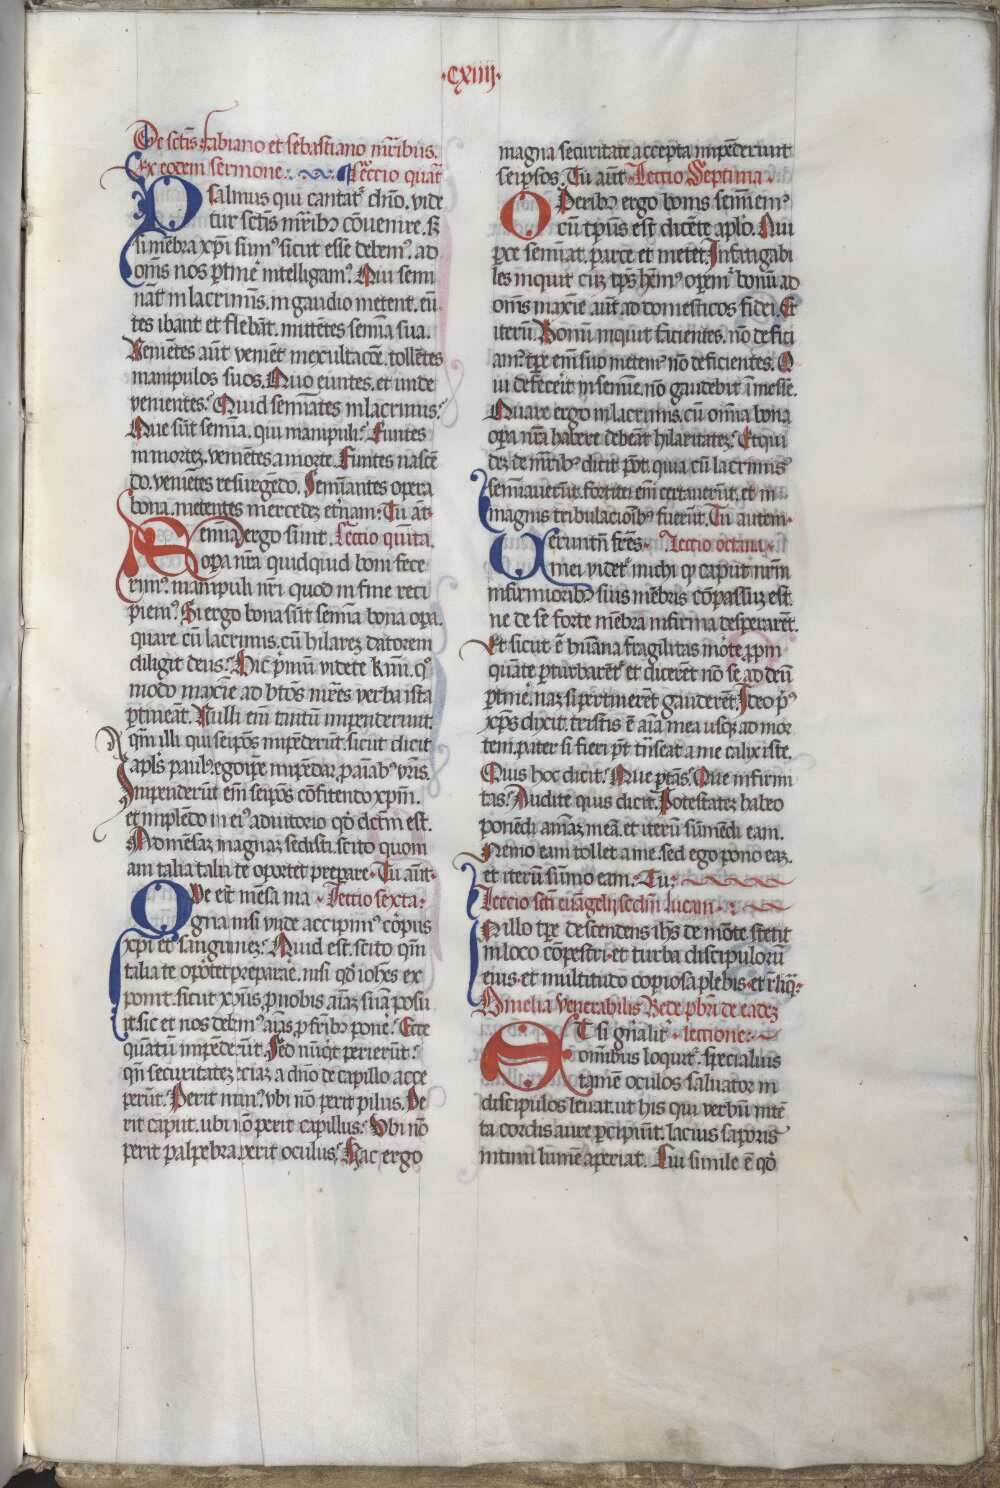 ·cxiiij·
De sctis fabiano et sebastiano mr̄ibus.
Ex eodem sermone. Lectio quar̄t
Psalmus qui cantat᷑ dn̄o, vide
tur sctīs mr̄ibꝫ cōvenire. si
si mēbra xp̄i sumꝰ sicut esse debemꝰ. ad
om̄s nos ꝑtinē intelligamꝰ. Qui semi
nāt in lacrimis, in gaudio metent. eū
tes ibant et flebāt. mittētes semīa sua.
Veniētes aūt veniēt in exultacōe. tollētes
manipulos suos. Quo euntes, et unde
venientes? Quid semiātes in lacrimis?
Que sūt semīa. qui manipuli? Euntes
in mortē. veniētes a morte. Euntes nascē
do. veniētes resurgēdo. Semīantes opera
bona. metentes mercedē et̄nam: Tu aūt
Semīa ergo sunt Lectio quīta.
opa nr̄a quidquid boni fece
rimꝰ. manipuli nr̄i quod in fine reci
piemꝰ. Si ergo bona sūt semīa bona opa.
quare cū lacrimis. cū hilarē datorem
diligit deus? Hic p̄mū videte k̄mi. qͦ
modo maxīe ad btōs mr̄es verba ista
ꝑtineāt. Nulli em̄ tantū impenderunt
qm̄ illi qui seip̄os īpēderūt sicut dicit
apl̄s paulꝰ. ego ip̄e impēdar. p aīabꝰ vr̄is.
Impenderūt em̄ seip̄os cōfitendo xp̄m.
et implēdo in eiꝰ adiutorio qd̄ dictm̄ est.
Ad mēsaꝫ magnaꝫ sedisti. scito quom
am talia talia te oportet prepare. Tu aūt.
Que est mēsa ma Lectio sexta:
gna nisi vnde accipimꝰ corpus
xp̄i et sanguinez? Quid est scito qm̄
talia te oportet preparare. nisi qd̄ ioh̄es ex
ponit. sicut xp̄us p nobis aīaꝫ suā posu
it. sic et nos debemꝰ aīas p fr̄ibꝫ ponē. Ecce
quātū impēderūt. Sed nūqd̄ perierūt?
qn̄ securitatez eciaꝫ a dn̄o de capillo acce
perūt. Perit manꝰ. vbi nō perit pilus. Pe
rit caput. ubi nō perit capillus? Vbi nō
perit palpebra. perit oculus? Hac ergo
magna securitate accepta impēderunt
seipsos. Tu aūt Lectio Septima.
Operibꝫ ergo bonis semīemꝰ
cū tp̄us est dicēte aplō. Qui
ꝑce semīat. parce et metet. Infatigabi
les inquit cū tp̄s hēmꝰ opemꝰ bonū ad
om̄s maxīe aūt ad domesticos fidei. Et
iterū. Bonū inquit facientes. nō defici
amꝰ. tp̄e em̄ suo metemꝰ nō deficientes. Q
ui defecerit in semīe. nō gaudebit ī messe.
Quare ergo in lacrimis. cū omīa bona
opa nr̄a habere debeāt hilaritatez. Et qui
dez de mr̄ibꝫ dicit p̄ōt. quia cū lacrimis
semīauerūt. fortit̄ em̄ certauerūt. et in
magnis tribulacōibꝫ fuerūt. Tu autem.
Veruntn̄ fr̄es Lectio octaua.
mei videt᷑ michi qꝫ caput nrm̄
infirmioribꝫ suis mēbris cōpassuꝫ est.
ne de se forte mēbra infirma desperarēt.
Et sicut ē humāna fragilitas mōte ppin
quāte pturbarēt᷑ et dicerēt nō se ad deū
ptinē. naꝫ si ptinerēt gauderēt. Ideo pͥꝰ
xp̄s dixit. tristis ē aīa mea usqꝫ ad mor
tem. pater si fieri pōt trāseat a me calix iste.
Quis hoc dicit? Que ptās. Que infirmi
tas? Audite quis dicit. Potestatez habeo
ponēdi aīmaꝫ meā. et iterū sūmēdi eam.
Nemo eam tollet a me. sed ego pono eaꝫ.
et iterū sūmo eam. Tu:
Leccio scti euāgelij scdm̄ lucam.
In illo tp̄e descendens ih̄s de mōte stetit
in loco cōpestri. et turba discipulorū
ejus. et multitudo copiosa plebis. et rliq̄.
Omelia venerabilis Bede pb̄ri de eadeꝫ
Et si gn̄alit̄ lectione:
omībus loquit᷑. specialius
tamē oculos saluator in
discipulos leuat. ut his qui verbū intē
ta cordis aure pcipiūt. lacius saporis
intimi lumē aperiat. Cui simile ē qd̄